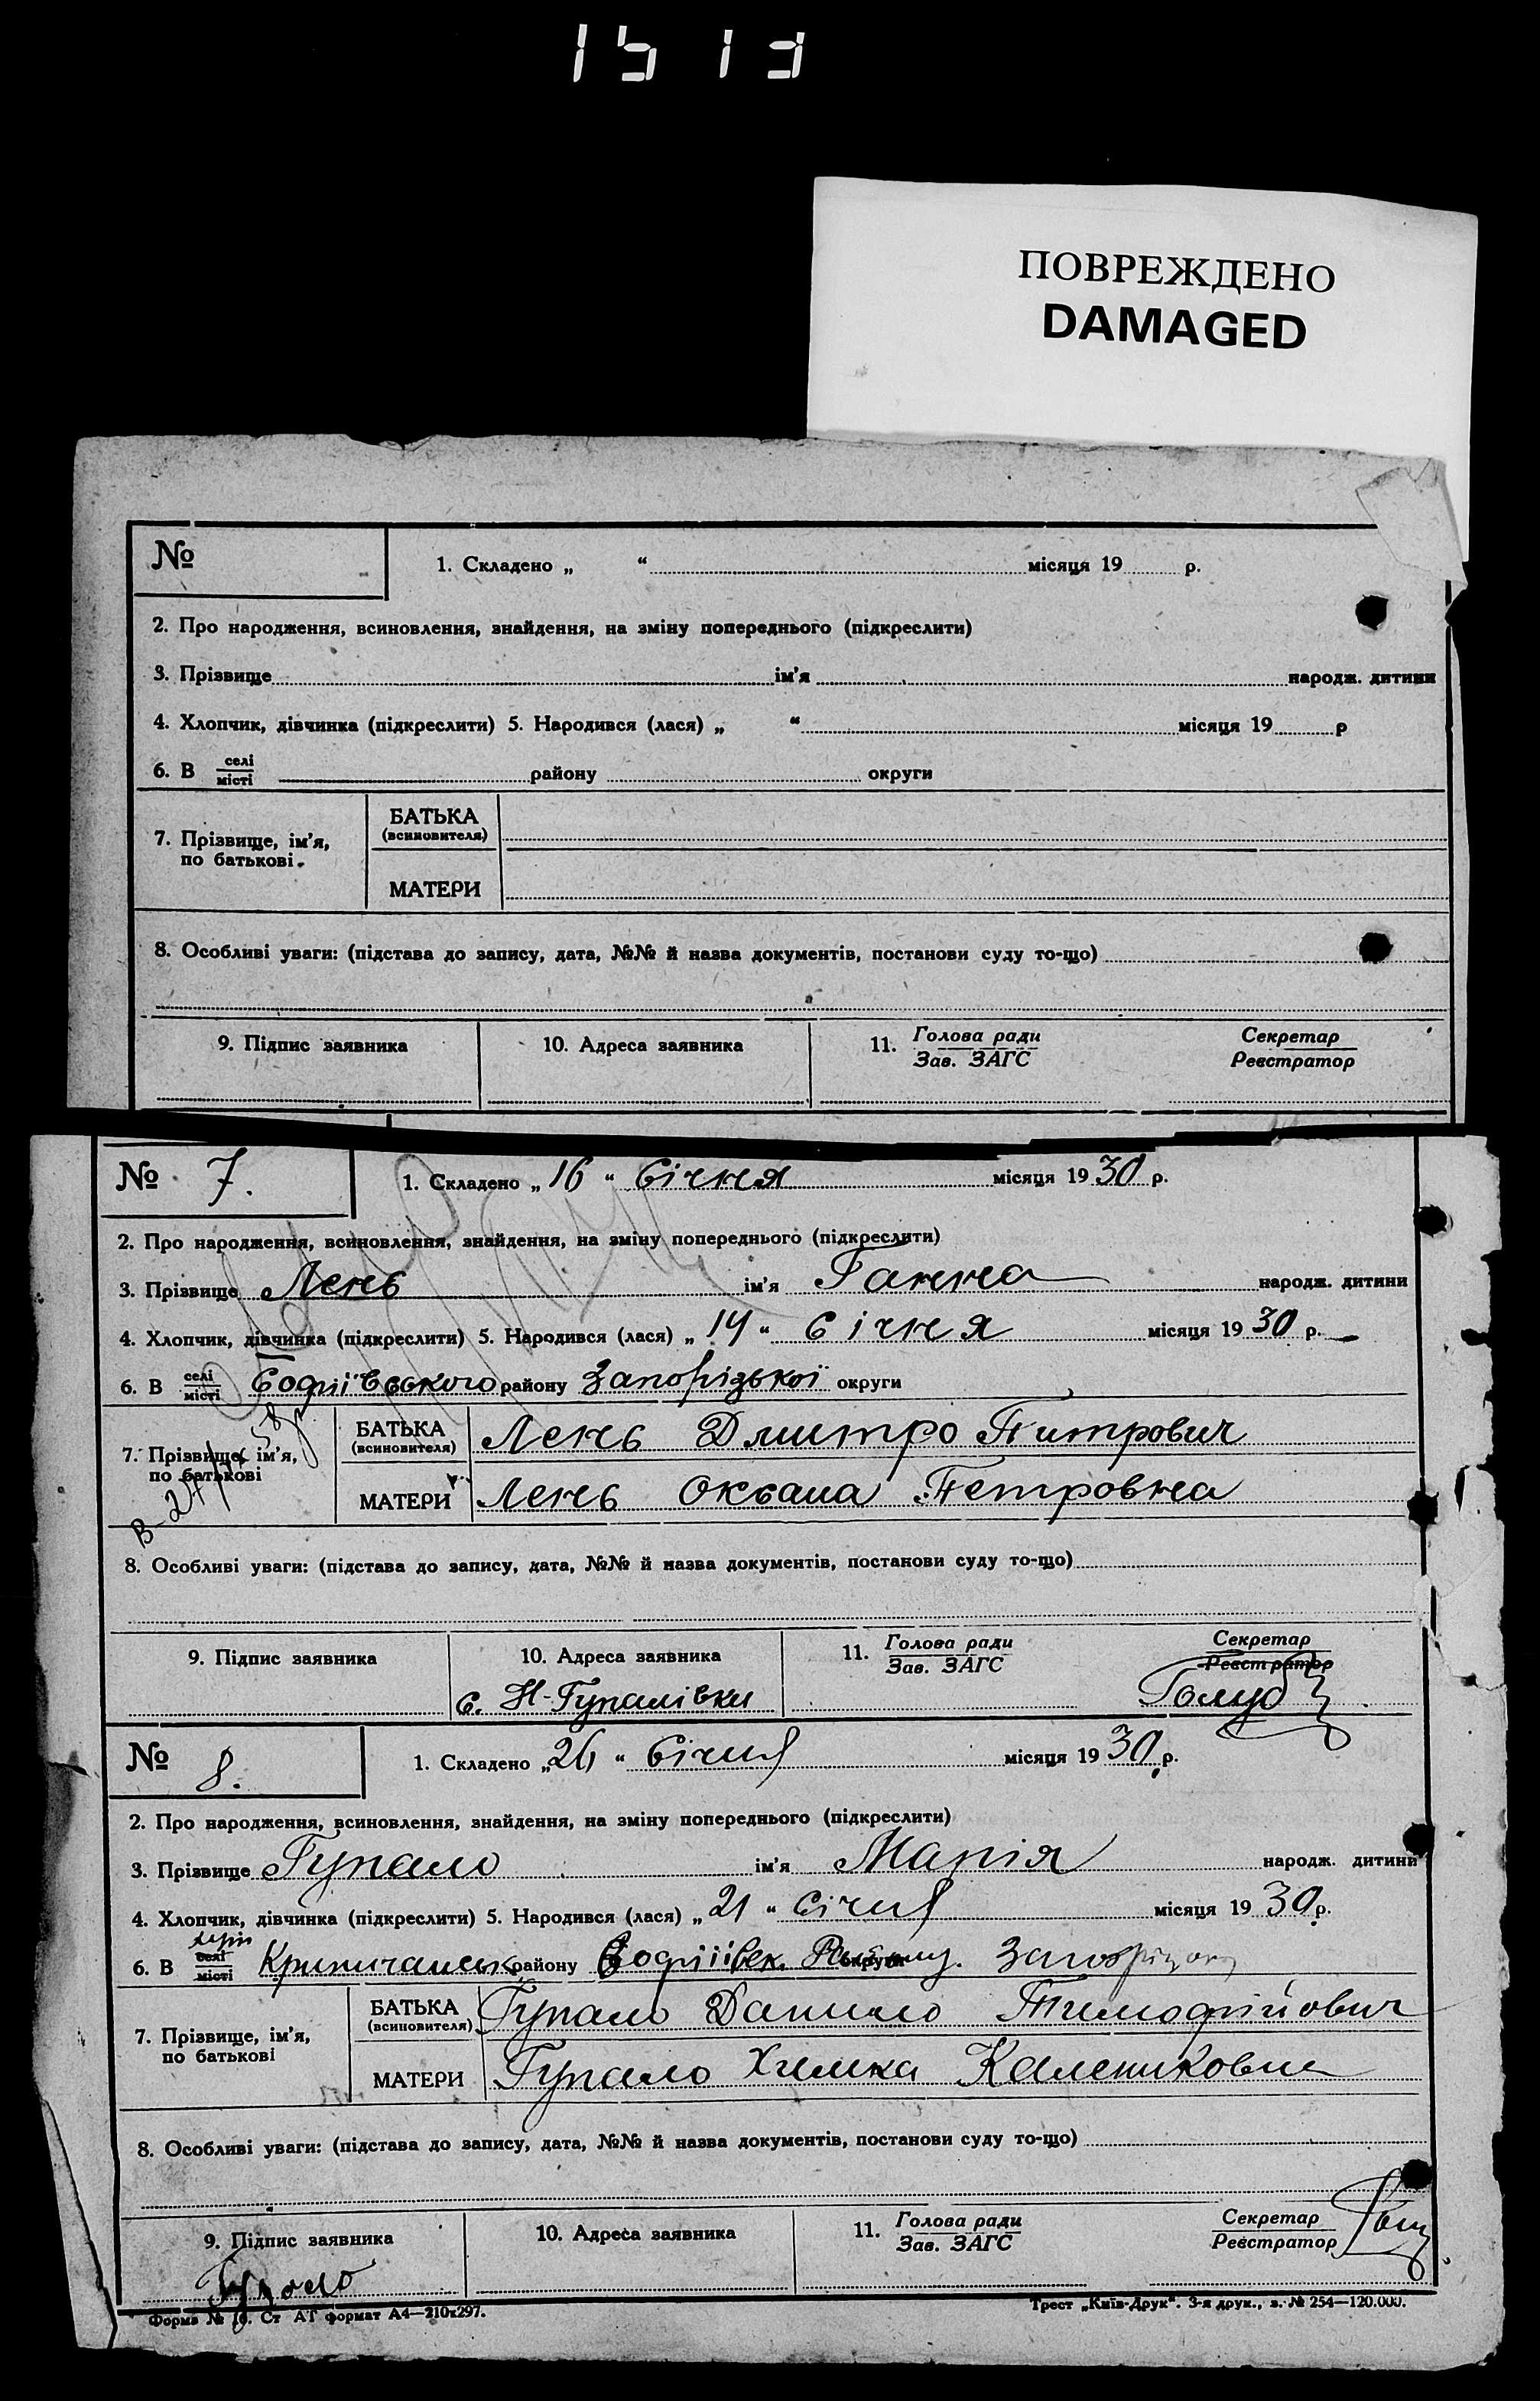 1513
ПОВРЕЖДЕНО
DAMAGED
№
1. Складено „ “ місяця 19 р.
2. Про народження, всиновлення, знайдення, на зміну попереднього (підкреслити)
3. Прізвище ім'я народж. дитини
4. Хлопчик, дівчинка (підкреслити) 5. Народився (лася) „ “ місяця 19 р
6. В селі місті району округи
7. Прізвище, ім'я, по батькові.
БАТЬКА (всиновителя)
МАТЕРИ
8. Особливі уваги: (підстава до запису, дата, №№ й назва документів, постанови суду то-що)
9. Підпис заявника 10. Адреса заявника 11. Голова ради Зав. ЗАГС Секретар Реєстратор
№ 7. 1. Складено „16“ Січня місяця 1930 р.
2. Про народження, всиновлення, знайдення, на зміну попереднього (підкреслити)
3. Прізвище Лень ім'я Ганна народж. дитини
4. Хлопчик, дівчинка (підкреслити) 5. Народився (лася) „14“ Січня місяця 1930 р.
6. В селі місті Софіївського району Запорізької округи
7. Прізвище, ім'я, по батькові
БАТЬКА (всиновителя) Лень Дмитро Питрович
МАТЕРИ Лень Оксана Петровна
8. Особливі уваги: (підстава до запису, дата, №№ й назва документів, постанови суду то-що)
9. Підпис заявника 10. Адреса заявника 11. Голова ради Зав. ЗАГС Секретар Реєстратор
с. Н-Гупалівки Голуб
№ 8. 1. Складено „26“ Січня місяця 1930 р.
2. Про народження, всиновлення, знайдення, на зміну попереднього (підкреслити)
3. Прізвище Гупало ім'я Марія народж. дитини
4. Хлопчик, дівчинка (підкреслити) 5. Народився (лася) „21“ Січня місяця 1930 р.
6. В селі місті району Софіївск. округи
7. Прізвище, ім'я, по батькові
БАТЬКА (всиновителя) Гупало Данило Тимофійович
МАТЕРИ Гупало Химка Калениковна
8. Особливі уваги: (підстава до запису, дата, №№ й назва документів, постанови суду то-що)
9. Підпис заявника 10. Адреса заявника 11. Голова ради Зав. ЗАГС Секретар Реєстратор
Гупало
Форма № Ст АТ формат А4—210x297.
Трест „Київ-Друк“. 3-я друк., з. № 254—120.000.